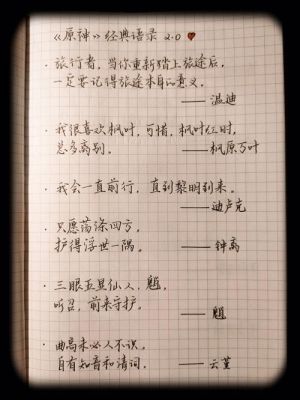 《原神》经典语录 2.0 ♥
· 旅行者,当你重新踏上旅途后,
一定要记得旅途本身的意义。
—— 温迪
· 我很喜欢枫叶,可惜,枫叶红时,
总多离别。 —— 枫原万叶
· 我会一直前行,直到黎明到来。
—— 迪卢克
· 只愿荡涤四方,
护得浮世一隅。 —— 钟离
· 三眼五显仙人,魈,
听召,前来守护。
—— 魈
· 曲高未必人不识,
自有知音和清词。 —— 云堇